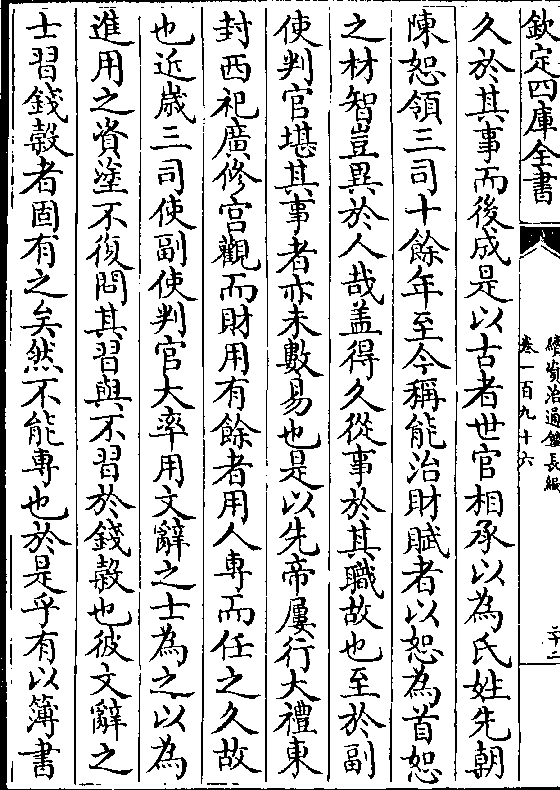 欽定四庫全書
續資治通鑑長編
卷一百九十六
二十二
久於其事而後成是以古者世官相承以為氏姓先朝
陳恕領三司十餘年至今稱能治財賦者以恕為首恕
之材智豈異於人哉盖得久從事於其職故也至於副
使判官堪其事者亦未數易也是以先帝屢行大禮東
封西祀廣修宫觀而財用有餘者用人專而任之久故
也近歳三司使副使判官大率用文辭之士為之以為
進用之資塗不復問其習與不習於錢穀也彼文辭之
士習錢穀者固有之矣然不能專也於是乎有以簿書